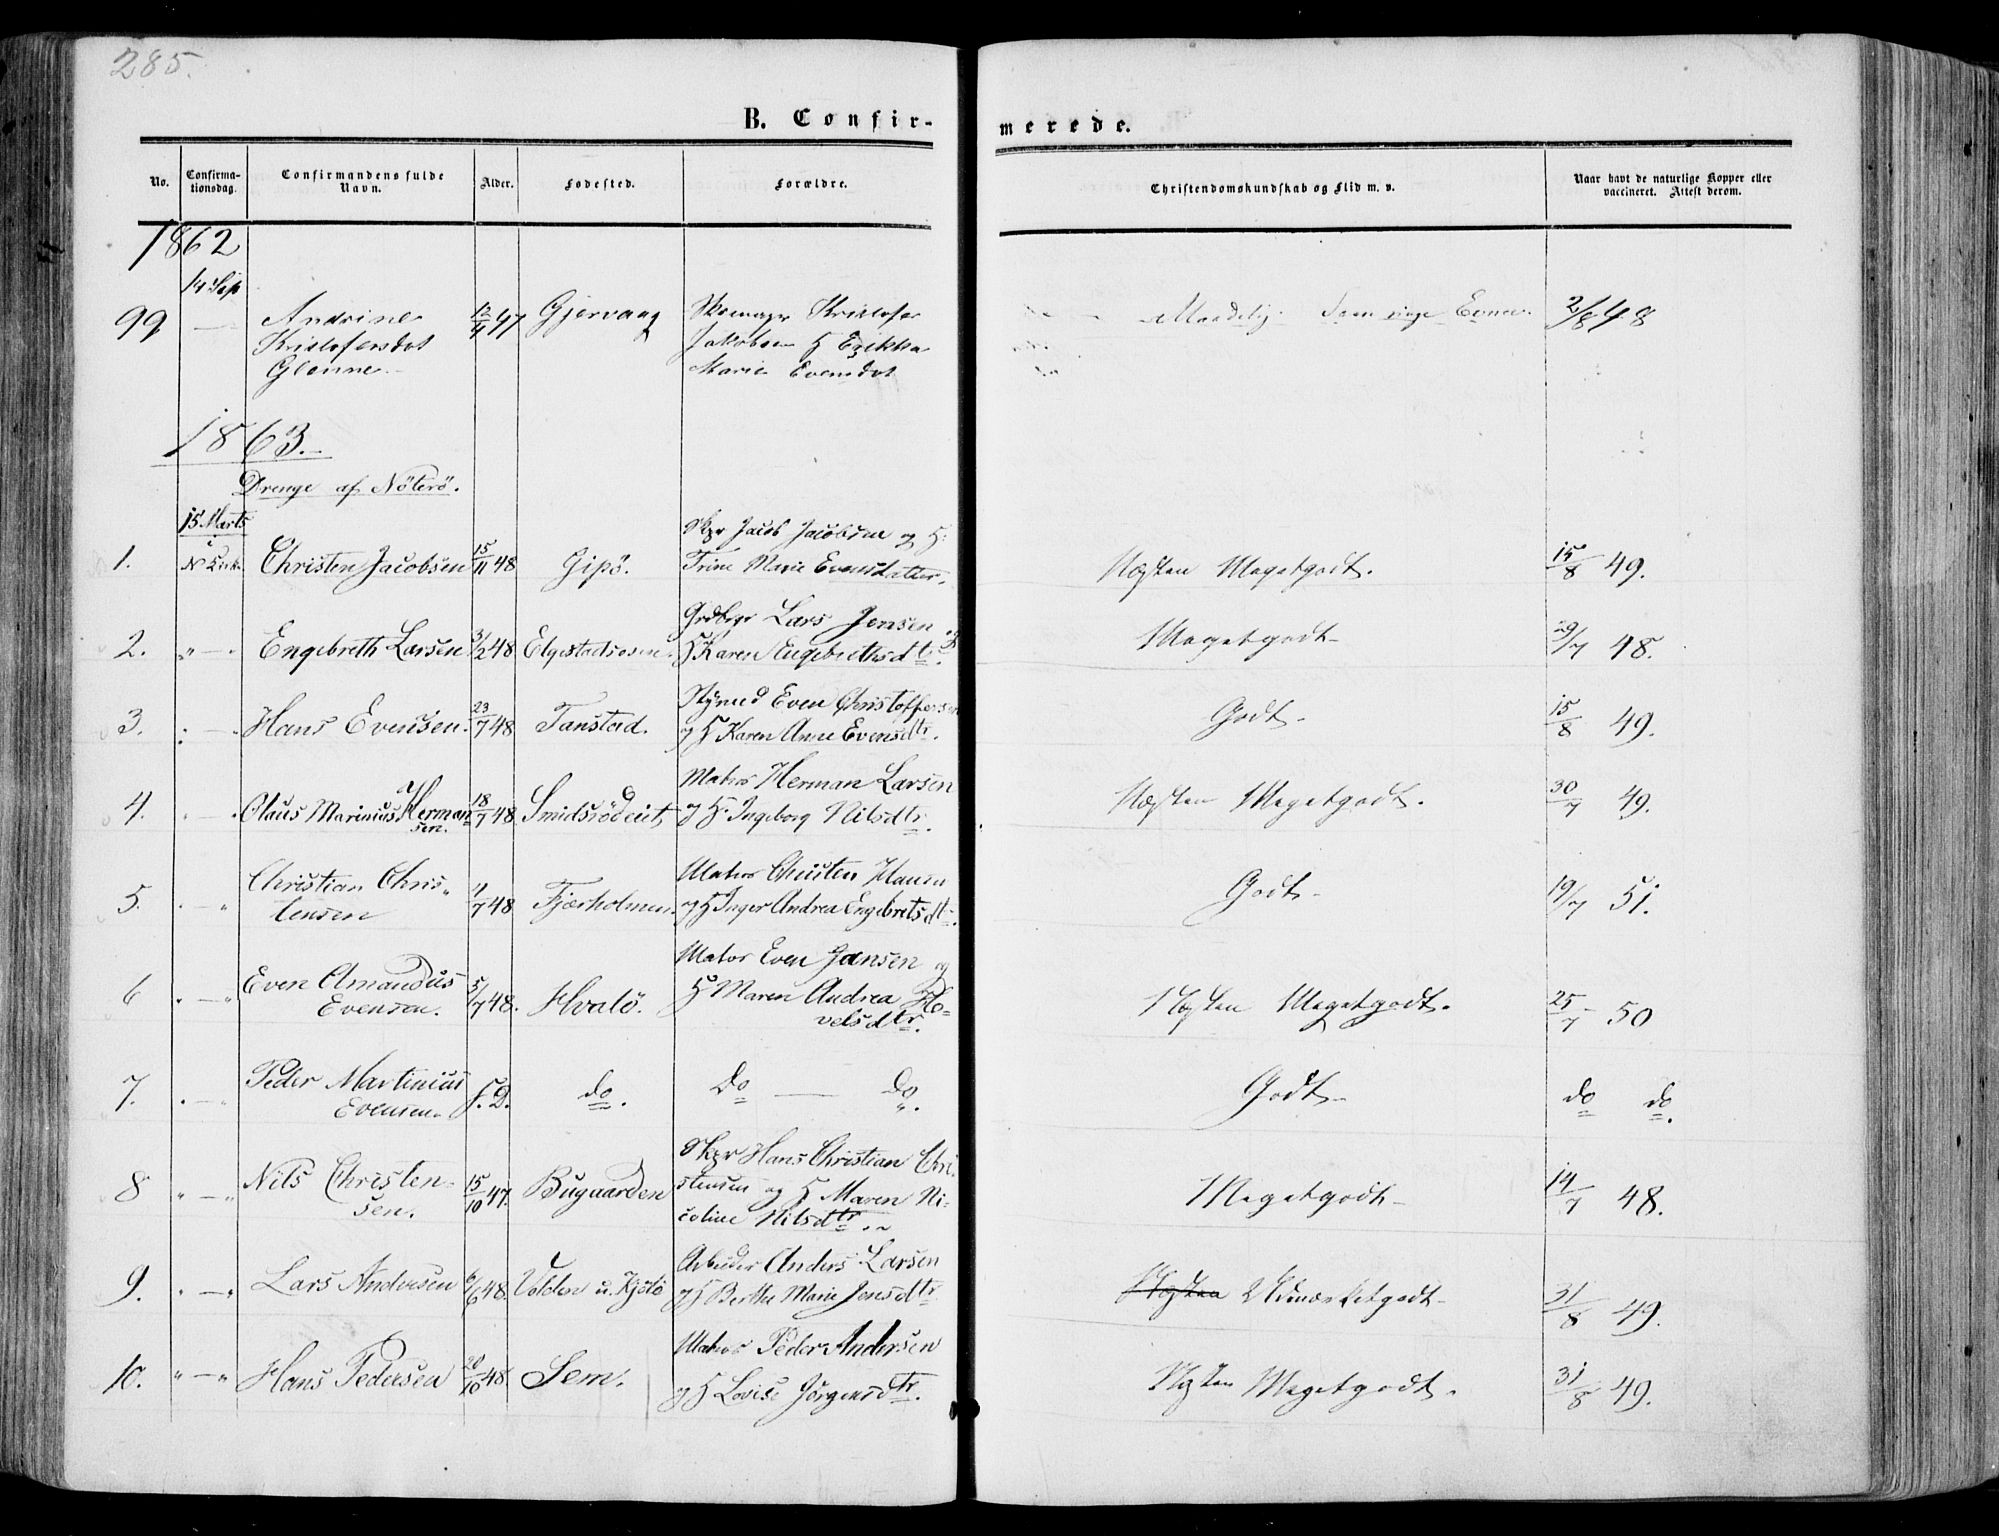 285.
B. Confirmerede.
No. Confirmationsdag. Confirmandens fulde Navn. Alder. Fødested. Forældre. Christendomskundskab og Flid m. v. Naar havt de naturlige Kopper eller vaccineret. Attest derom.
1862
14 Sep
99 — Andrine Kristofersdat Glenne. 12/4 47 Gjervaag Kristofer Jakobsen H Erikka Marie Evensdat Maadelig. Evner. 2/8 48
1863.
Drenge af Nöterö.
15 Marts i N Kirk
1. Christen Jacobsen 15/11 48 Gipö. Skpr Jacob Jacobsen og H: Trine Marie Evensdatter. Næsten Megetgodt. 15/8 49.
2. „ — „ Engebreth Larsen 3/2 48 Elgestadsosen. Grdbrgr Lars Jensen og H Karen Engebrethsdtr. Megetgodt 29/7 48.
3. „ — „ Hans Evensen. 23/7 48 Tanstad. Stymd Even Christoffersen og H Karen Anne Evensdtr. Godt. 15/8 49.
4. „ — „ Olaus Marinius Hermansen. 18/7 48. Smidsrödeiet Matros Herman Larsen og H. Ingeborg Nilsdtr. Næsten Megetgodt. 30/7 49.
5. „ — „ Christian Christensen 4/7 48 Fjærholmen. Matros Christen Hansen og H Inger Andrea Engebretsdt. Godt 19/7 51.
6 „ — „ Even Amandus Evensen. 5/7 48. Hvalö. Matros Even Jansen og H Maren Andrea Hovelsdtr. Næsten Megetgodt. 25/7 50
7. „ — „ Peder Martinius Evensen. s. D. do. Do — Do. Godt do do.
8 „ — „ Nils Christensen. 15/10 47. Bugaarden Skpr Hans Christian Christensen og H Maren Nicoline Nilsdtr. Megetgodt 14/7 48.
9. „ — „ Lars Andersen 6/6 48. Volden u. Kjölö Arbeider Anders Larsen og H Berthe Marie Jensdtr Næsten Udmærketgodt 31/8 49.
10. „ — „ Hans Pedersen 20/10 48. Sem. Matros Peder Andersen og H Lovise Jörgensdtr. Næsten Megetgodt. 31/8 49.